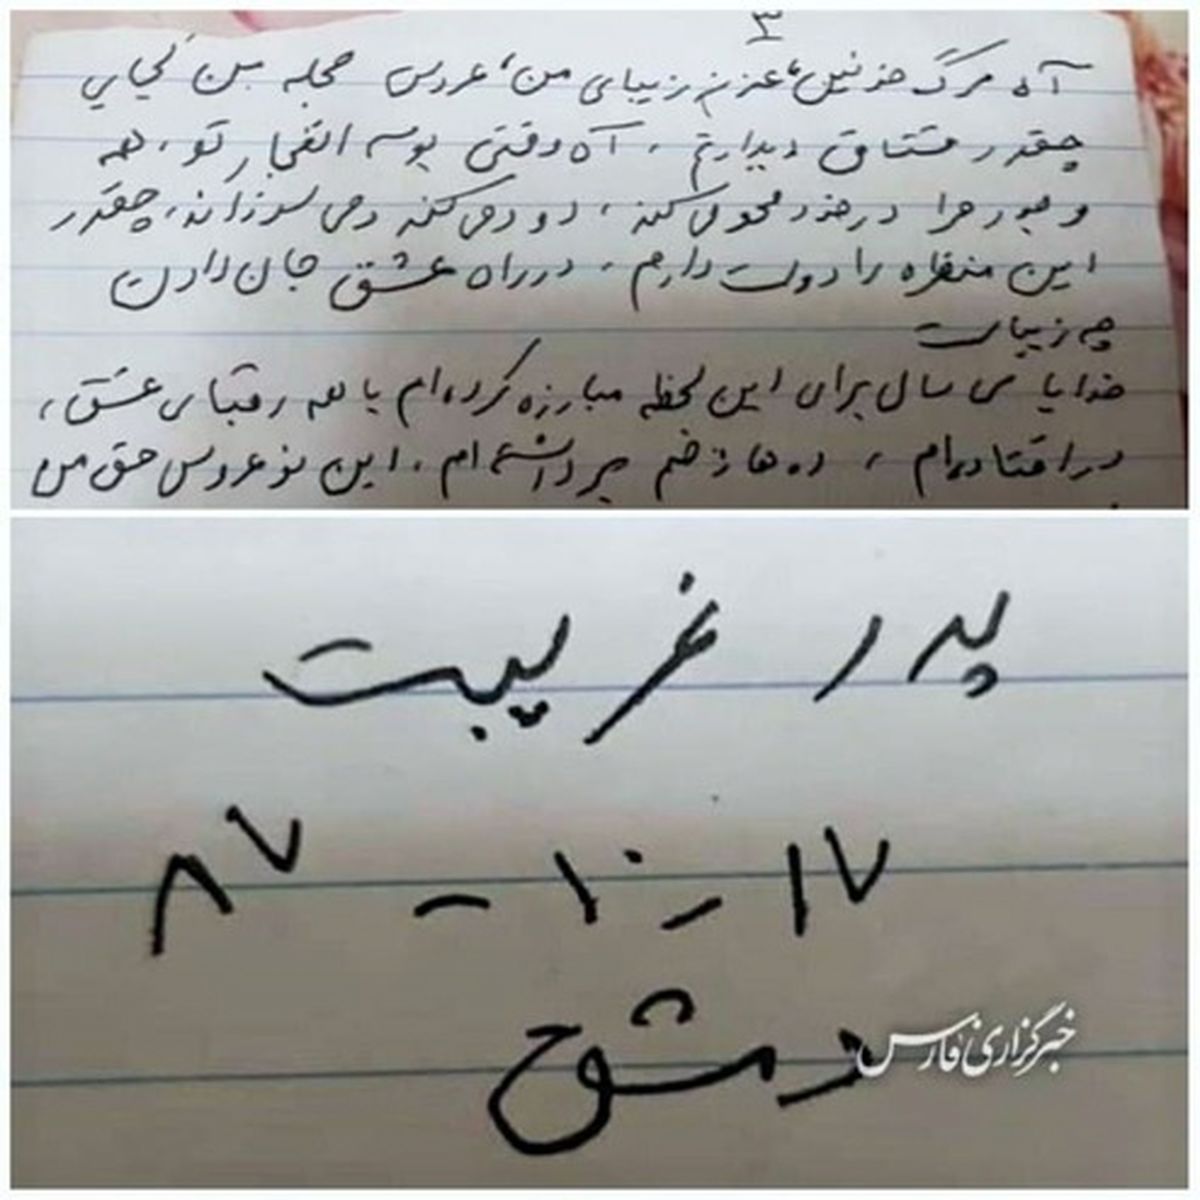 ۳
آه مرگ خونین، عزیز زیبای من، عروس حجله من کجایی
چقدر مشتاق دیدارتم، آه وقتی بوسه انفجار تو، همه
وجود مرا در خود محو می‌کند، دود می‌کند و می‌سوزاند، چقدر
این منظره را دوست دارم، در راه عشق جان دادن
چه زیباست
خدایا سی سال برای این لحظه مبارزه کرده‌ام با همه رقبای عشق،
درافتاده‌ام، ده‌ها زخم برداشته‌ام، این نوعروس حق من
پدر غریبت
۱۷-۱۰-۸۷
دمشق
خبرگزاری فارس